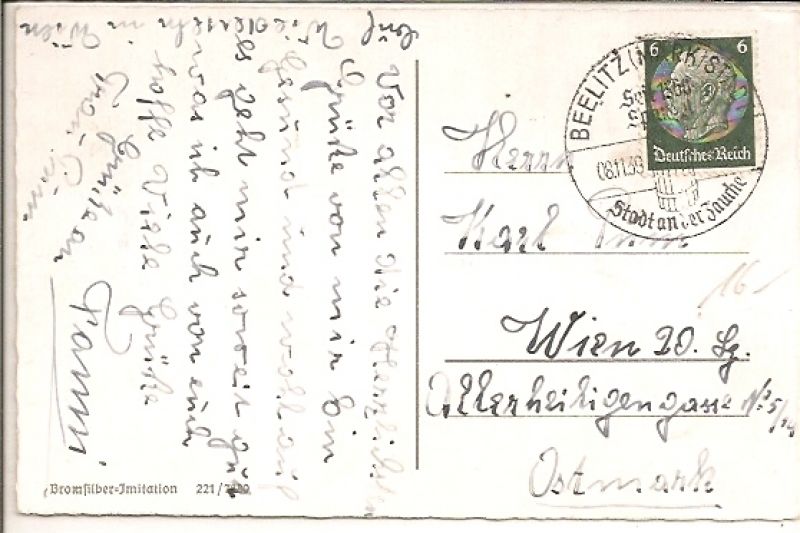 Vor allen die Herzlichsten
Grüße von mir bin
gesund und wohl auf
es geht mir soweit gut
was ich auch von euch
hoffe Viele Grüße
Fanni
Auf Wiedersehn in Wien
6 6
Deutsches Reich
BEELITZ (MARK) STADT
08.11.39
Stadt an der Zauche
Herrn
Karl
Wien 20. Bz.
Allerheiligengasse No 5/
Ostmark
16-
Bromsilber-Imitation 221/